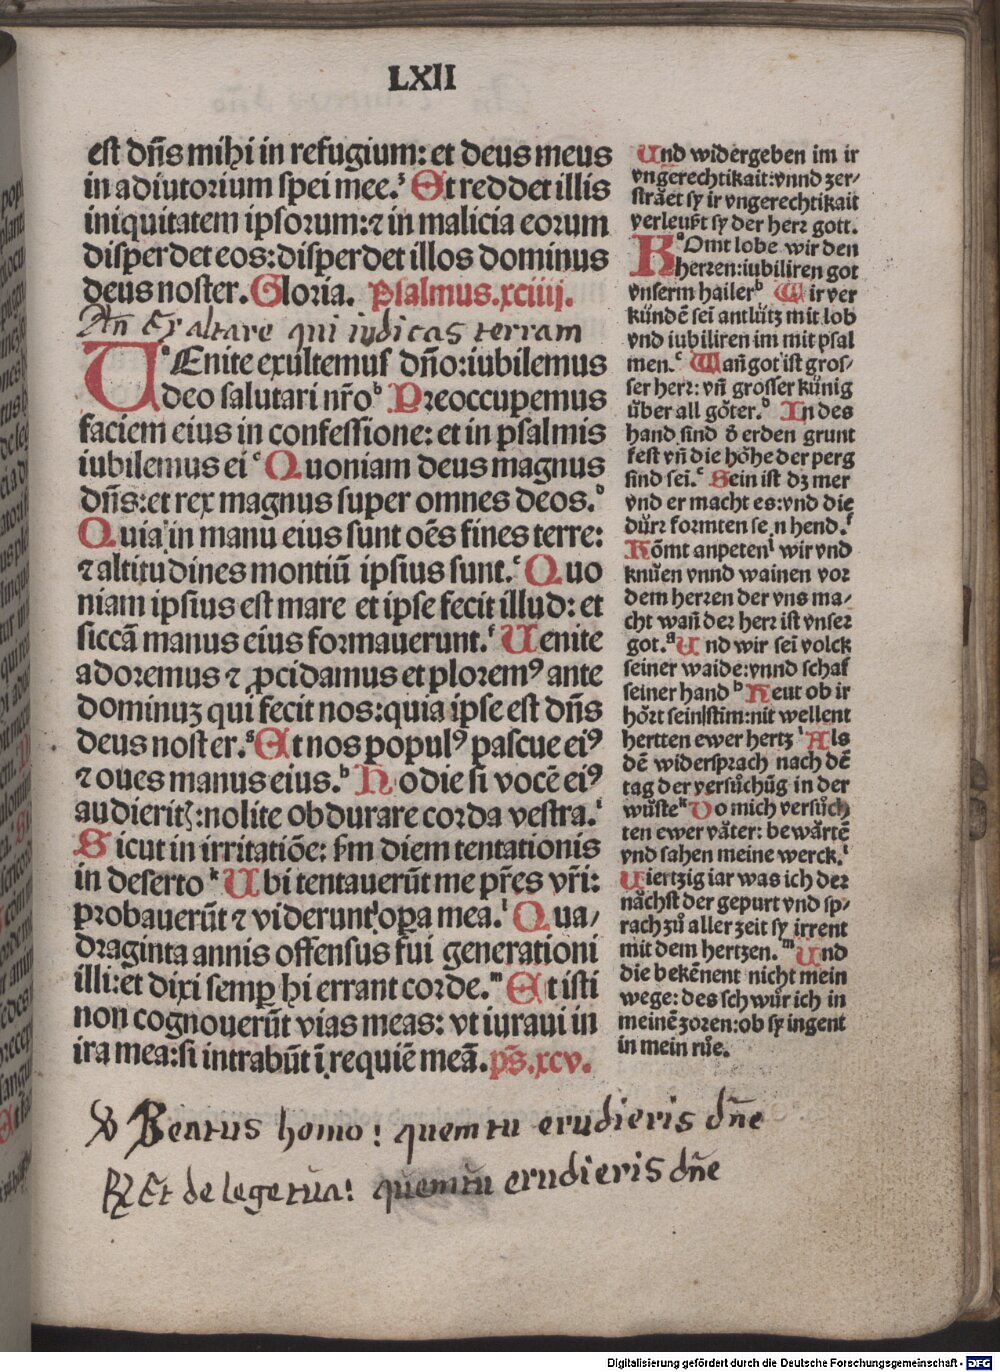 LXII
est dñs mihi in refugium: et deus meus
in adiutorium spei mee.ᶻ Et reddet illis
iniquitatem ipsorum:⁊ in malicia eorum
disperdet eos:disperdet illos dominus
deus noster. Gloria. Psalmus.xciiij.
An Exaltare qui iudicas terram
VᵃEnite exultemus dño:iubilemus
deo salutari nr̃oᵇ Preoccupemus
faciem eius in confessione: et in psalmis
iubilemus ei ᶜ Quoniam deus magnus
dñs:et rex magnus super omnes deos.ᵈ
Quia in manu eius sunt oẽs fines terre:
⁊ altitudines montiũ ipsius sunt.ᵉ Quo
niam ipsius est mare et ipse fecit illud: et
siccã manus eius formauerunt.ᶠ Uenite
adoremus ⁊ ꝓcidamus et ploremꝰ ante
dominuꝫ qui fecit nos:quia ipse est dñs
deus noster.ᵍ Et nos populꝰ pascue eiꝰ
⁊ oues manus eius.ʰ Hodie si vocẽ eiꝰ
audieritꝭ:nolite obdurare corda vestra.ⁱ
Sicut in irritatiõe: ẜm diem tentationis
in deserto ᵏ Ubi tentauerũt me pr̃es vr̃i:
probauerũt ⁊ viderunt oꝑa mea.ˡ Qua/
draginta annis offensus fui generationi
illi:et dixi semꝑ hi errant corde.ᵐ Et isti
non cognouerũt vias meas: vt iuraui in
ira mea:si intrabũt ĩ requiẽ meã. ps̃.xcv.
Und widergeben im ir
vngerechtikait:vnnd zer/
strãet sy ir vngerechtikait
verleußt sy der herr gott.
KᵃOmt lobe wir den
herren:iubiliren got
vnserm hailerᵇ Wir ver
kündẽ sei antlütz mit lob
vnd iubiliren im mit psal
men.ᶜ Wañ got ist gros/
ser herr: vñ grosser künig
über all göter.ᵈ In des
hand sind d̕ erden grunt
fest vñ die höhe der perg
sind sei.ᵉ Sein ist dz mer
vnd er macht es:vnd die
dürr formten sein hend.ᶠ
Kömt anpeten wir vnd
knüen vnnd wainen vor
dem herren der vns ma/
cht wañ der herr ist vnser
got.ᵍ Und wir sei volck
seiner waide:vnnd schaf
seiner hand ʰ Heut ob ir
hört sein stim:nit wellent
hertten ewer hertz ⁱ Als
dẽ widersprach nach dẽ
tag der versůchũg in der
wůsteᵏ Do mich versůch
ten ewer väter: bewärtẽ
vnd sahen meine werck.ˡ
Uiertzig iar was ich der
nächst der gepurt vnd sp/
rach zů aller zeit sy irrent
mit dem hertzen.ᵐ Und
die bekẽnent nicht mein
wege: des schwůr ich in
meinẽ zoren:ob sy ingent
in mein růe.
℣ Beatus homo: quem tu erudieris dñe
℟ Et de lege tũa: quem tũ erudieris dñe
Digitalisierung gefördert durch die Deutsche Forschungsgemeinschaft - DFG